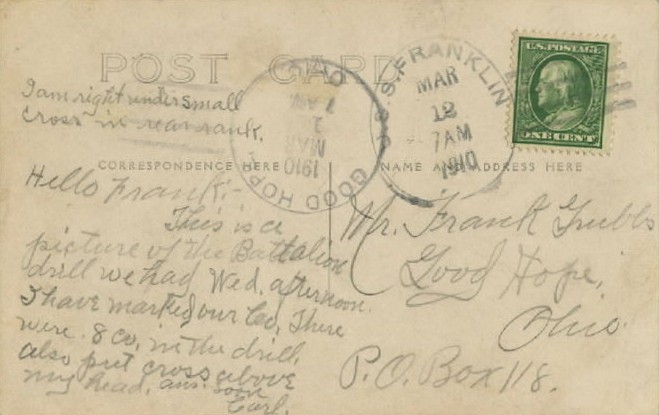 POST CARD
I am right under small
cross in rear rank.
CORRESPONDENCE HERE
Hello Frank:-
This is a
picture of the Battalion
drill we had Wed. afternoon.
I have marked our Co. There
were 8 Co. in the drill.
also put cross above
my head. ans. soon
Carl.
GOOD HOPE
MAR
1910
7 AM
U.S.S. FRANKLIN
MAR
12
7AM
1910
U.S. POSTAGE
ONE CENT
NAME AND ADDRESS HERE
Mr. Frank Grubbs
Good Hope,
Ohio.
P.O. Box 118.